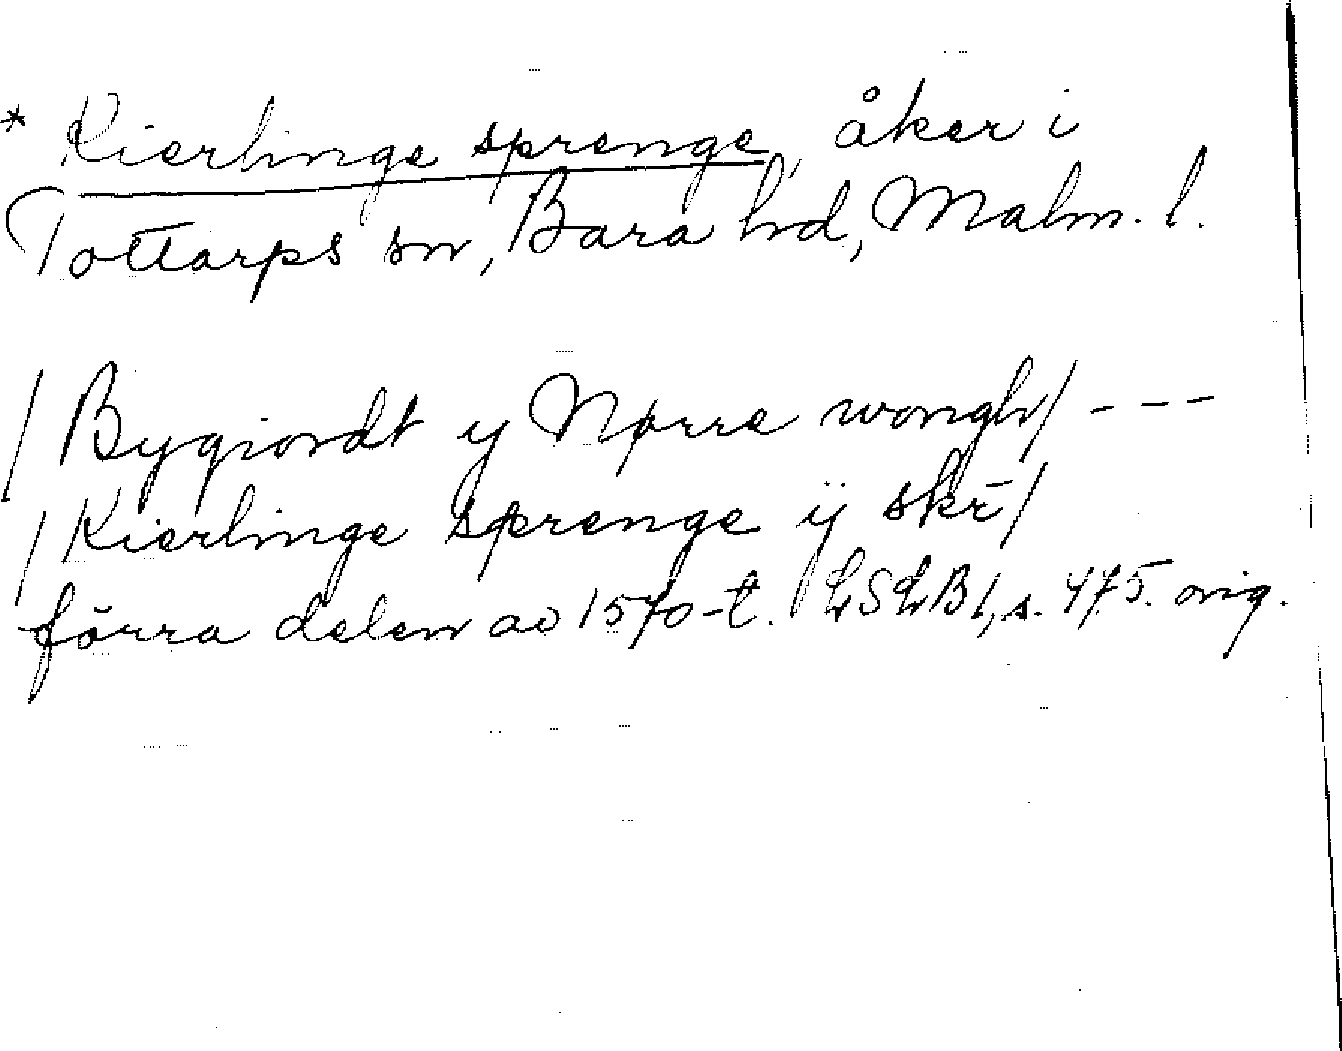 * Kierlinge sprenge, åker i
Tottarps sn, Bara hd, Malm. l.
/Bygiordt y Nørre wongh/ - - -
/Kierlinge sprenge ÿ skr̄/
förra delen av 1570-t. LSLB 1, s. 475. orig.